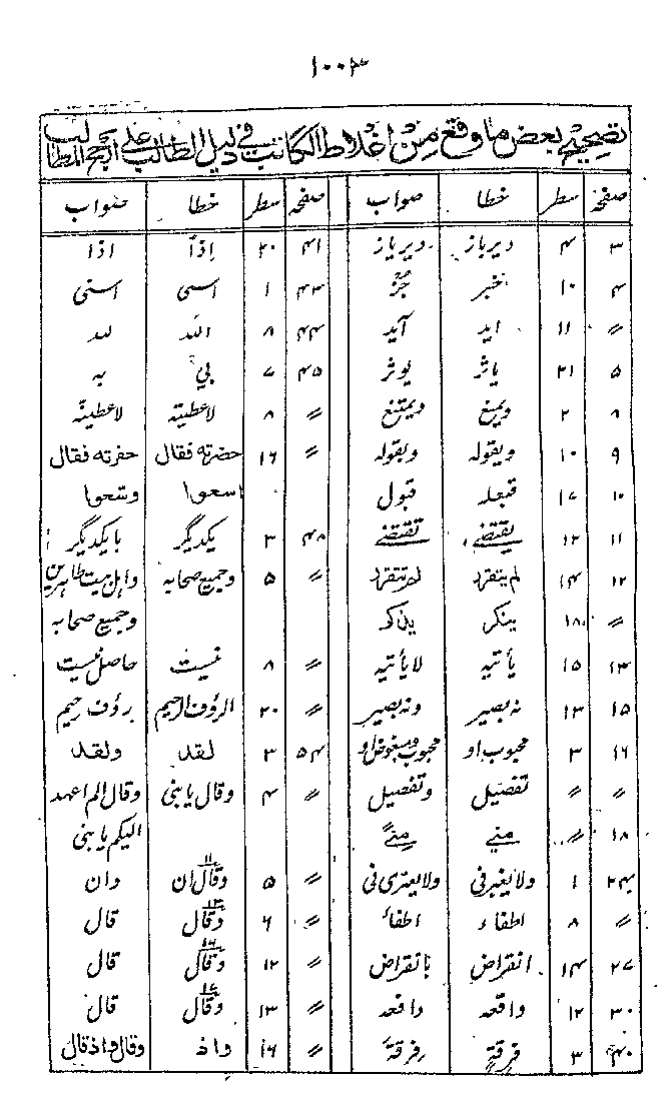 ۱۰۰۳
تصحیح بعض ما وقع من اغلاط الکاتب فی دلیل الطالب علی ارجح المطالب
صفحہ سطر خطا صواب صفحہ سطر خطا صواب
۳ ۴ دیرباز دیریاز ۴۱ ۲۰ إذاً اذا
۴ ۱۰ خبر جزء ۴۳ ۱ اسمی اسنی
〃 ۱۱ اید آید ۴۴ ۸ اللہ للہ
۵ ۲۱ یاثر یوثر ۴۵ ۷ بی بہ
۸ ۲ ویمنع ویمتنع 〃 ۸ لاعطیتہ لاعطینہ
۹ ۱۰ ویقولہ وبقولہ 〃 ۱۶ حضرتہ فقال حفرتہ فقال
۱۰ ۱۷ قبعلہ قبول اسعوا وسعوا
۱۱ ۱۲ یقتضے تقتضے ۴۸ ۳ یکدیگر بایکدیگر
۱۲ ۱۴ لم یتفرد لم تتفرد 〃 ۵ وجمیع صحابہ واہل بیت طاہرین
〃 ۱۸ ینکر یذکر وجمیع صحابہ
۱۳ ۱۵ یأتیہ لایأتیہ 〃 ۸ نیست حاصل نیست
۱۵ ۱۳ نہ بصیر ونہ بصیر 〃 ۲۰ الرؤف الرحیم رؤف رحیم
۱۶ ۳ محبوب او محبوب ومبغوض او ۵۴ ۳ لقد ولقد
〃 〃 تفصیل وتفصیل 〃 ۴ وقال یا بنی وقال الم اعہد
۱۸ 〃 منے الیکم یا بنی
۲۴ ۱ ولا یغیر فی ولا یعتری فی 〃 ۵ وقال ان وان
〃 ۸ اطفاء اطفاء 〃 ۶ وقال قال
۲۷ ۱۴ انقراض بانقراض 〃 ۱۲ وقال قال
۳۰ ۱۲ واقعہ واقعہ 〃 ۱۳ وقال قال
۴۰ ۳ فرقة فرقة 〃 ۱۶ واذ وقال واذ قال